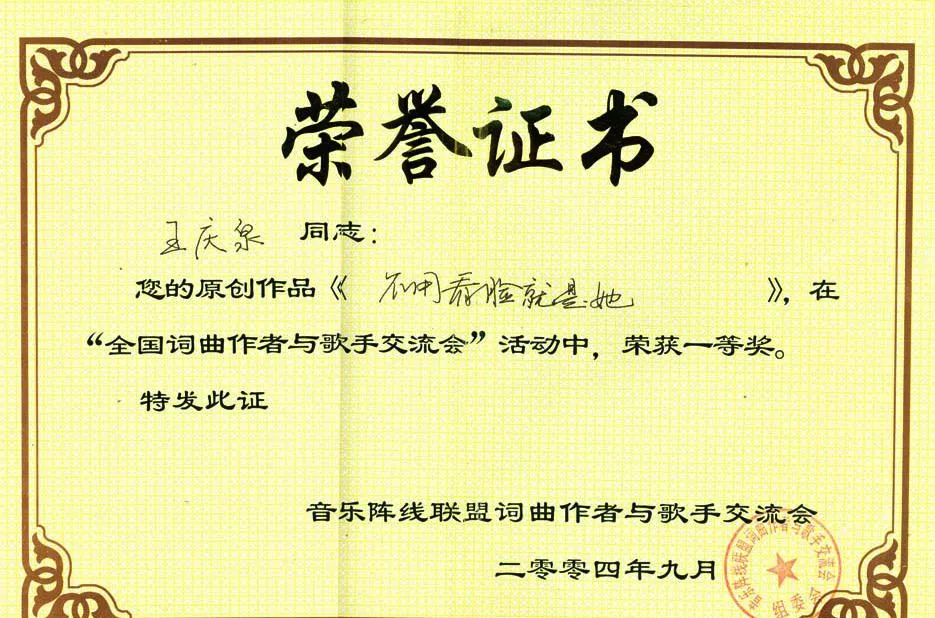 荣誉证书
王庆泉 同志：
您的原创作品《 不用看脸就是她 》，在
“全国词曲作者与歌手交流会”活动中，荣获一等奖。
特发此证
音乐阵线联盟词曲作者与歌手交流会
二零零四年九月
音乐阵线联盟词曲作者与歌手交流会
组委会